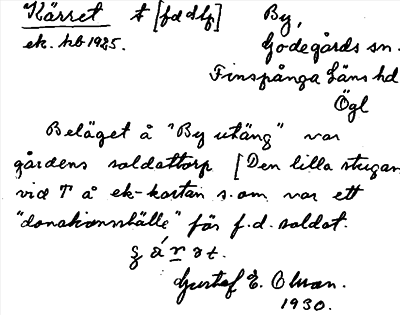 Kärret t [f d slp] By,
ek. hb 1925. Godegårds sn.
Finspånga Läns hd
Ögl
Beläget å "By utäng" var
gårdens soldattorp [Den lilla stugan
vid T å ek-kartan s.om var ett
"donationsställe" för f.d. soldat.
Gustaf E. Olsson.
1930.